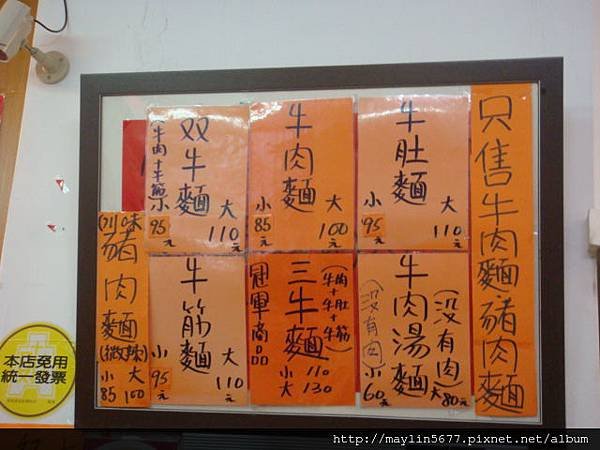 只售牛肉麵豬肉麵
牛肚麵
小95元
大110元
牛肉麵
小85元
大100元
双牛麵
(牛肉+牛筋)
小95元
大110元
牛肉湯麵
(没有肉)
(没有肉)
小60元
大80元
三牛麵
(牛肉+牛肚+牛筋)
冠軍商品
小110
大130
牛筋麵
小95元
大110元
(川味)
豬肉麵
(微辣)
小85
大100
本店免用
統一發票
http://maylin5677.pixnet.net/album